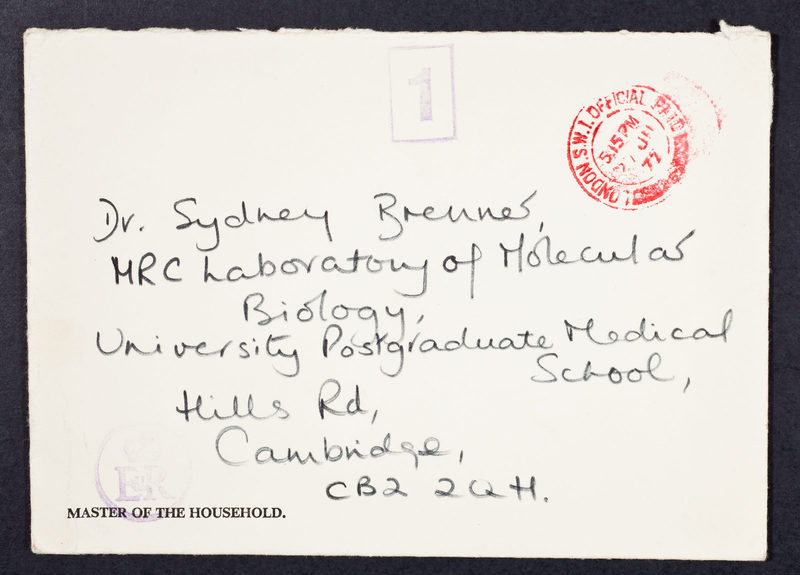 1
LONDON S.W.1. OFFICIAL PAID
5.15 PM
77
Dr. Sydney Brenner,
MRC Laboratory of Molecular
Biology,
University Postgraduate Medical
School,
Hills Rd,
Cambridge,
CB2 2QH.
E II R
MASTER OF THE HOUSEHOLD.